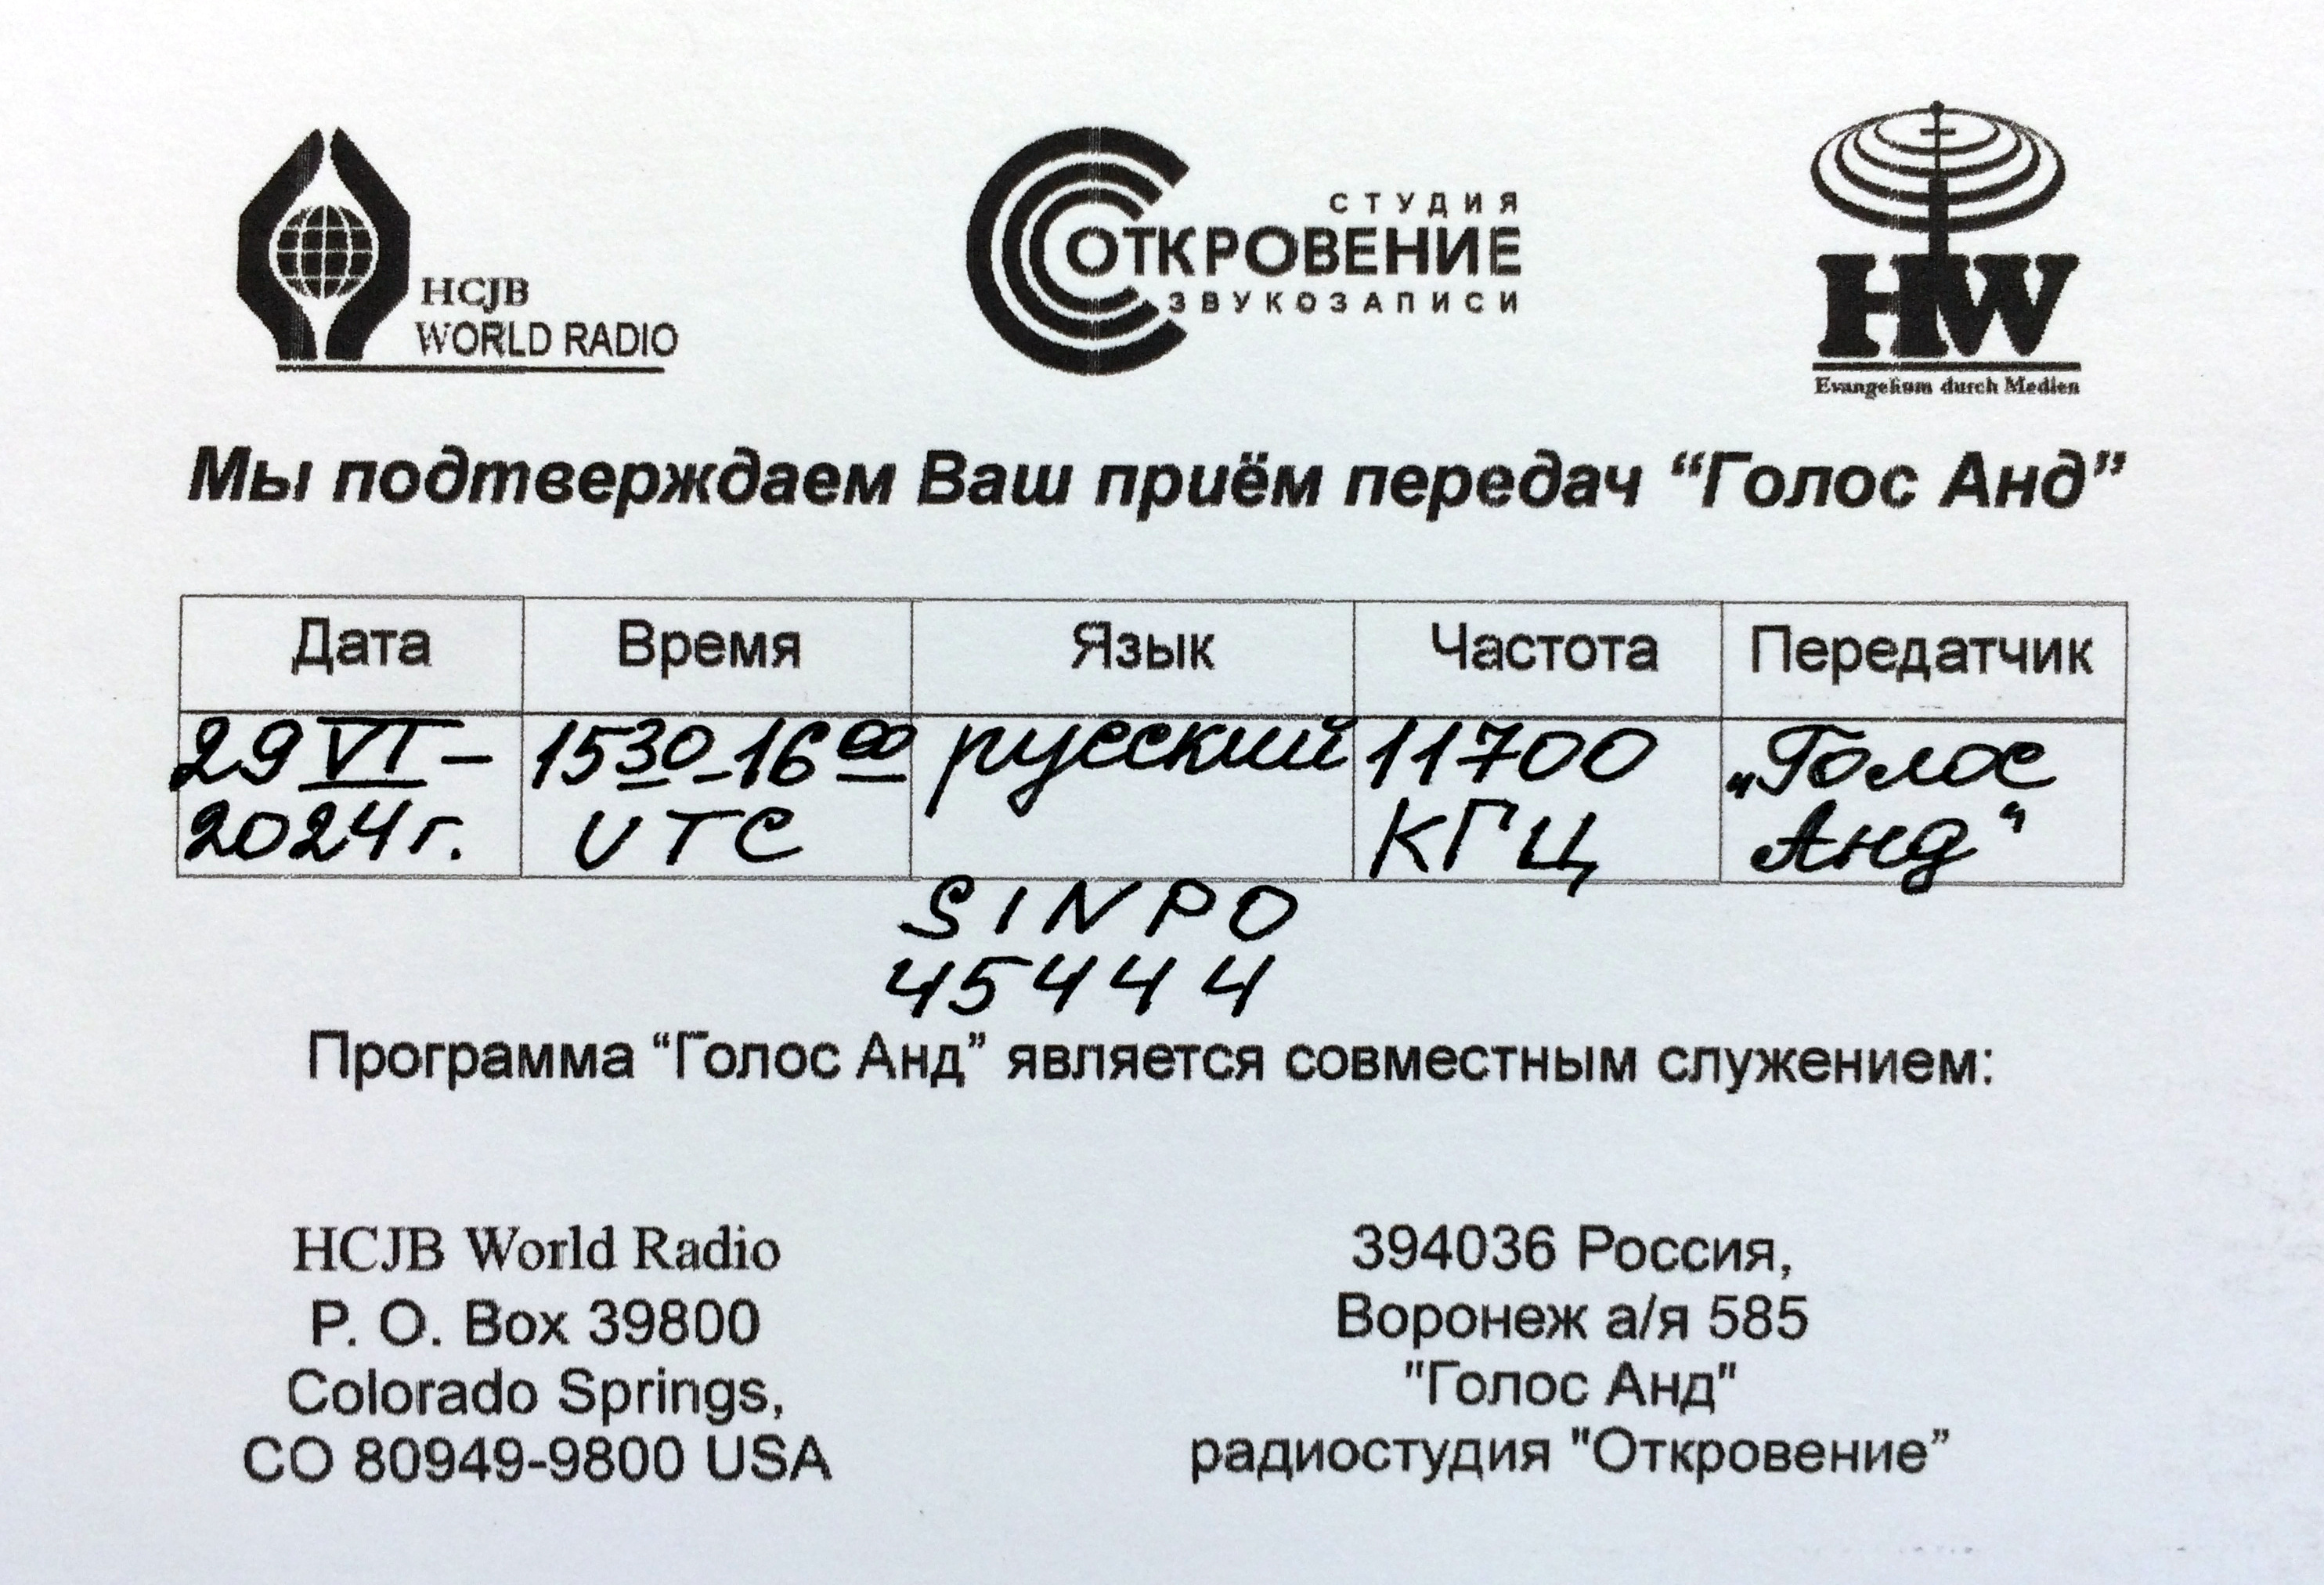 HCJB
WORLD RADIO
СТУДИЯ
ОТКРОВЕНИЕ
ЗВУКОЗАПИСИ
HW
Evangelium durch Medien
Мы подтверждаем Ваш приём передач “Голос Анд”
Дата Время Язык Частота Передатчик
29 VI - 15 30 - 16 00 русский 11700 „Голос
2024 г. UTC КГЦ Анд“
SINPO
45444
Программа “Голос Анд” является совместным служением:
HCJB World Radio
P. O. Box 39800
Colorado Springs,
CO 80949-9800 USA
394036 Россия,
Воронеж а/я 585
"Голос Анд"
радиостудия "Откровение”